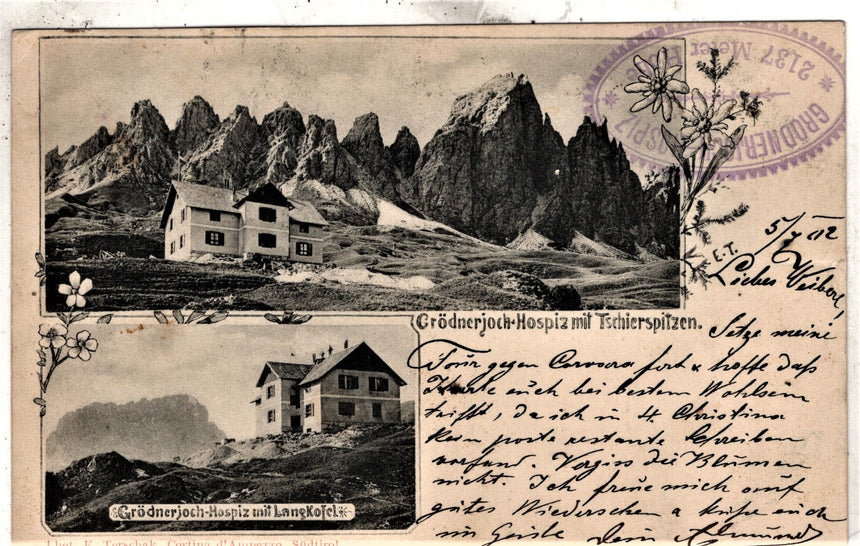 GRÖDNERJOCH-HOSPIZ
2137 Meter
E.T.
5/V 02
Liebes Weiberl,
Grödnerjoch-Hospiz mit Tschierspitzen.
Setze meine
Tour gegen Corvara fort u hoffe daß
Karte euch bei bestem Wohlsein
trifft, da ich in St. Christina
kein poste restante Schreiben
vorfand. Vergiss die Blumen
nicht. Ich freue mich auf
gutes Wiedersehen u küsse euch
im Geiste Dein
Grödnerjoch-Hospiz mit Langkofel
Phot. F. Terschak, Cortina d'Ampezzo, Südtirol